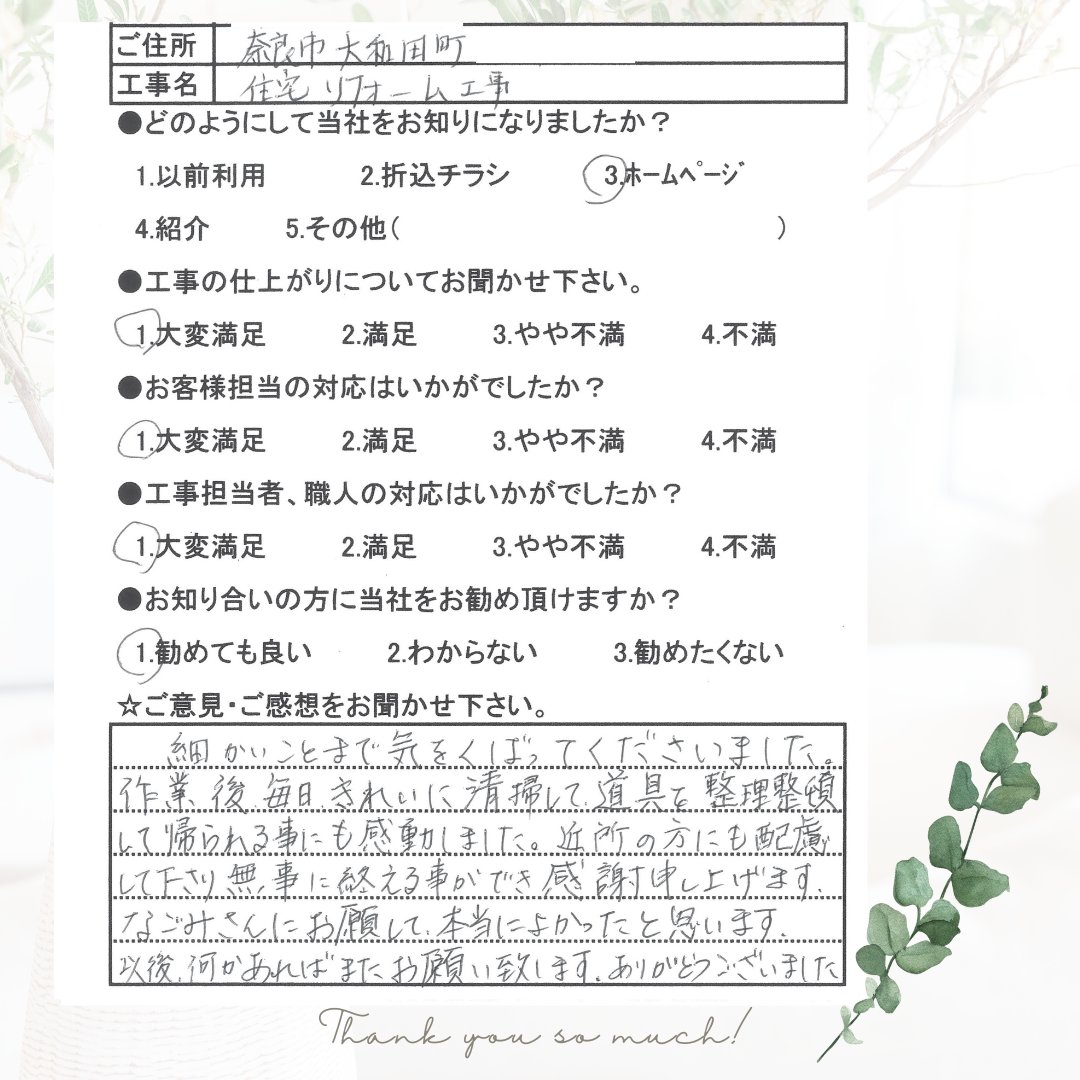 ご住所 奈良市大和田町
工事名 住宅リフォーム工事
●どのようにして当社をお知りになりましたか？
1.以前利用 2.折込チラシ 3.ﾎｰﾑﾍﾟｰｼﾞ
4.紹介 5.その他( )
●工事の仕上がりについてお聞かせ下さい。
1.大変満足 2.満足 3.やや不満 4.不満
●お客様担当の対応はいかがでしたか？
1.大変満足 2.満足 3.やや不満 4.不満
●工事担当者、職人の対応はいかがでしたか？
1.大変満足 2.満足 3.やや不満 4.不満
●お知り合いの方に当社をお勧め頂けますか？
1.勧めても良い 2.わからない 3.勧めたくない
☆ご意見・ご感想をお聞かせ下さい。
細かいことまで気をくばってくださいました。
作業後、毎日、きれいに清掃して、道具を整理整頓
して帰られる事にも感動しました。近所の方にも配慮
して下さり、無事に終える事ができ感謝申し上げます。
なごみさんにお願いして、本当によかったと思います。
以後、何かあればまたお願い致します。ありがとうございました
Thank you so much!